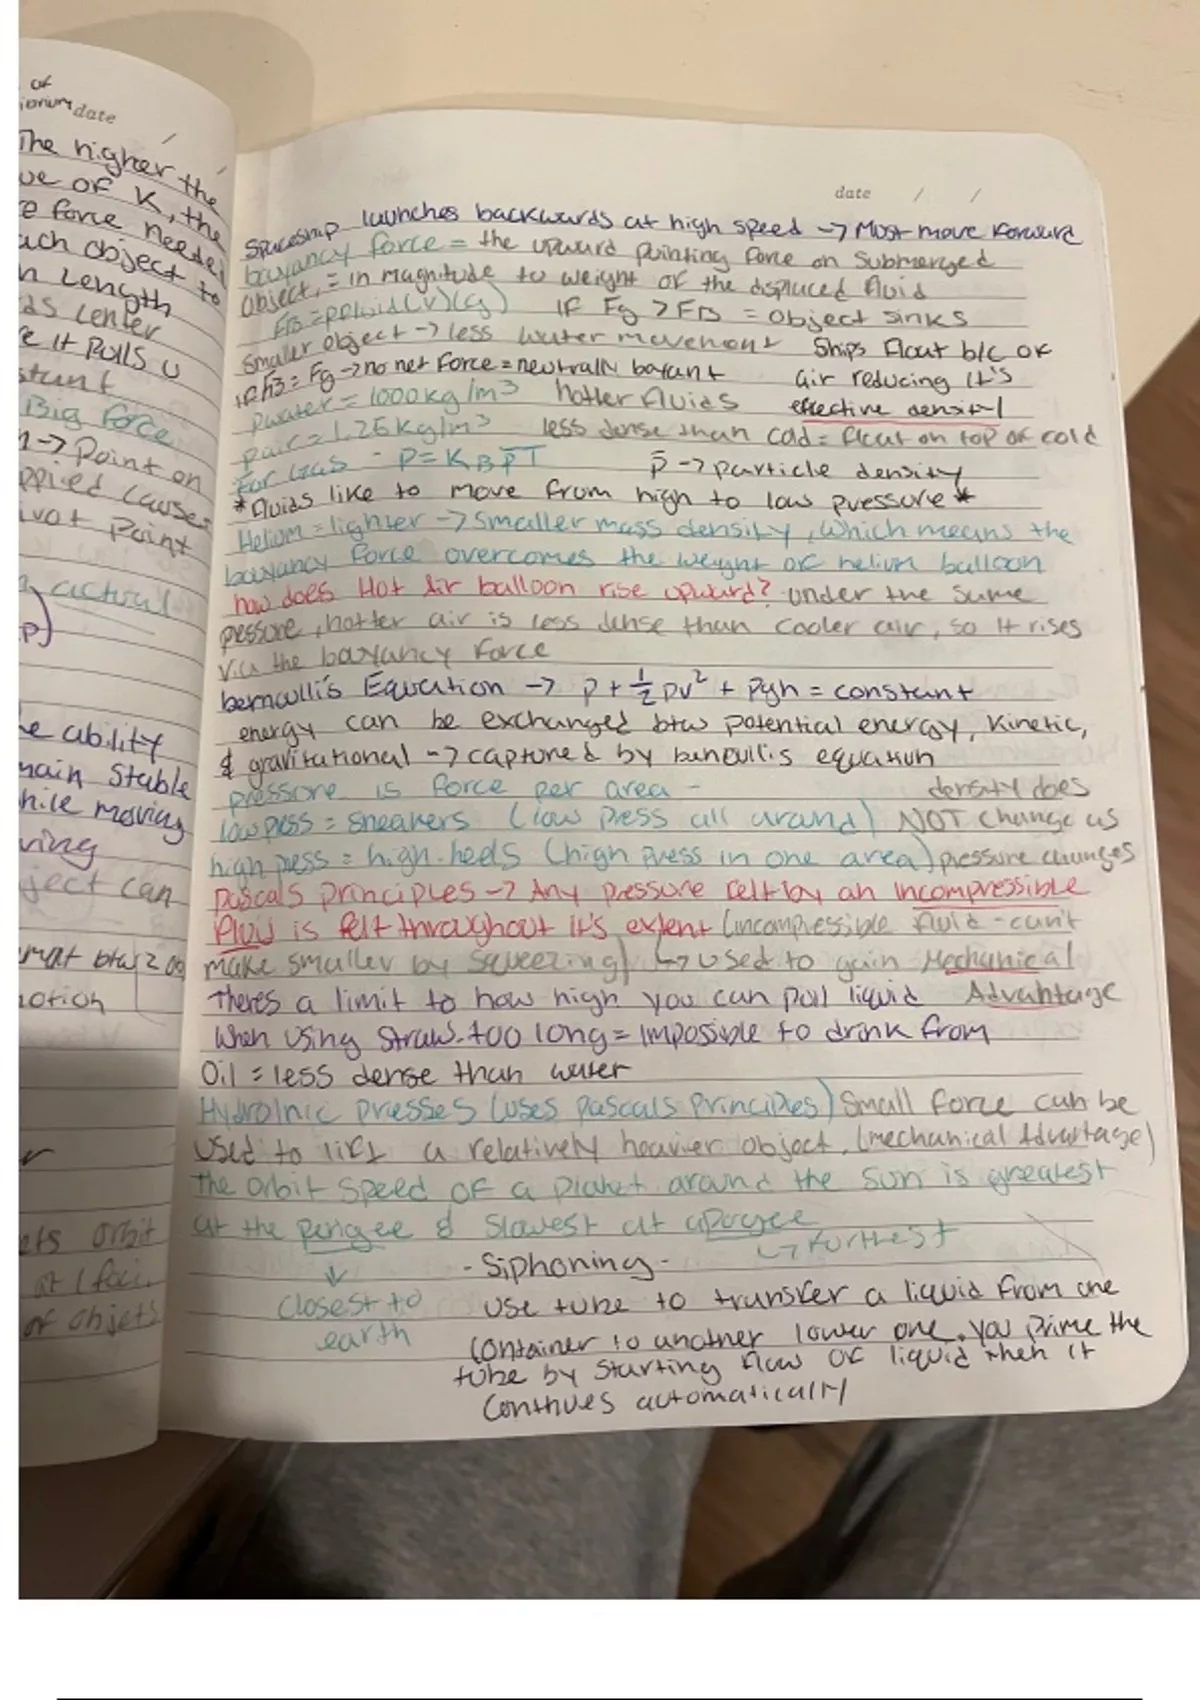 of
date
The higher the
ue of K, the
e force needed
ach object to
n Length
as center
e it pulls u
stant
Big force
n -> Point on
pplied causes
ivot Point
actual
p)
e ability
main stable
hile moving
ving
ject can
rmat btw 2 o
notion
r
ets orbit
at 1 foci.
of objets
date / /
Spaceship launches backwards at high speed -> Most move forward
buyancy force = the upward pointing force on submerged
Object, = in magnitude to weight of the displaced fluid
FB = pfluid(v)(g) IF Fg > FB = object sinks
Smaller object -> less water movement Ships float b/c of
IF FB = Fg -> no net force = neutrally boyant air reducing it's
pwater = 1000 kg/m³ hotter fluids effective density
pair = 1.25 kg/m³ less dense than cold = float on top of cold
For Gas - P = KB p̄ T p̄ -> particle density
*fluids like to move from high to low pressure*
Helium = lighter -> smaller mass density, which means the
bouyancy force overcomes the weight of helium balloon
how does Hot Air balloon rise upward? Under the same
pessure, hotter air is less dense than cooler air, so it rises
via the bayancy force
bernoulli's Equation -> p + ½ pv² + pgh = constant
energy can be exchanged btw potential energy, Kinetic,
& gravitational -> captured by benoulli's equation
pressure is force per area - density does
low press = sneakers (low press all around) NOT change as
high press = high-heels (high press in one area) pressure changes
Pascals principles -> Any pressure felt by an incompressible
Fluid is felt throughout it's extent (incompressible fluid - can't
make smaller by squeezing) ↳ used to gain Mechanical
Theres a limit to how high you can pull liquid Advantage
when using straw. too long = impossible to drink from
Oil = less dense than water
Hydrolnic presses (uses pascals principles) Small force can be
used to lift a relatively heavier object. (mechanical Advantage)
The orbit speed of a planet around the sun is greatest
at the perigee & slowest at apogee
↳ furthest
↓
closest to
earth
- Siphoning -
use tube to transfer a liquid from one
container to another lower one. you prime the
tube by starting flow of liquid then it
continues automatically